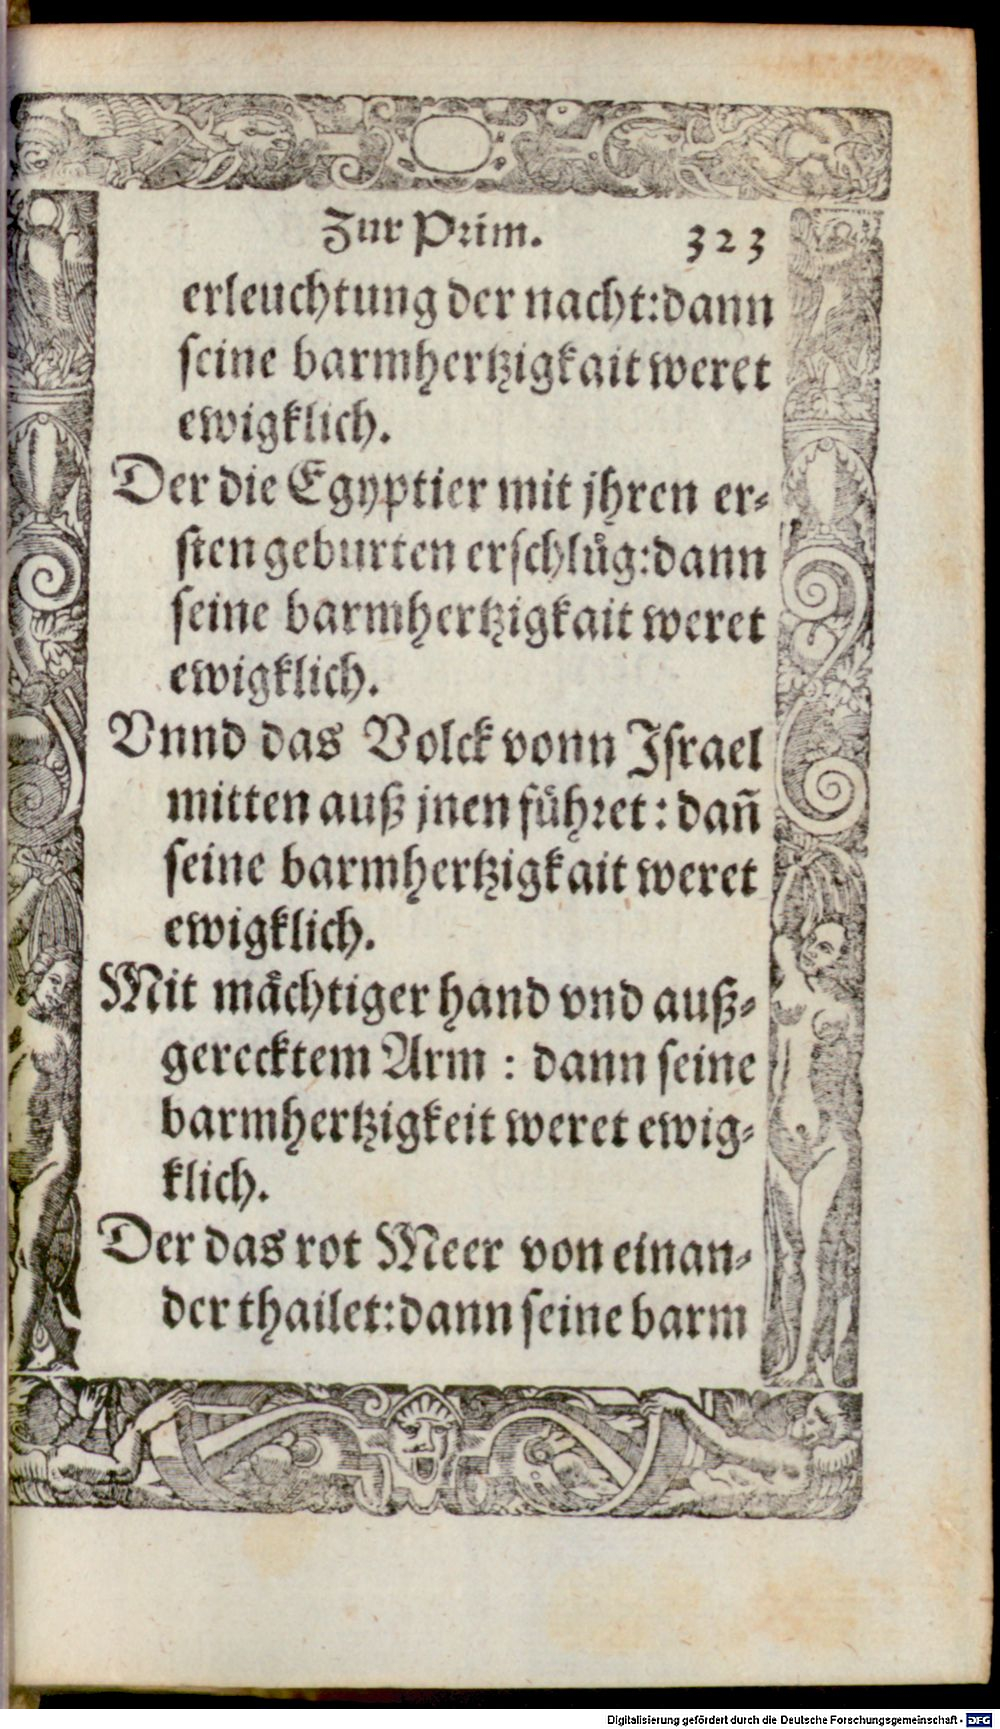 Zur Prim. 323
erleuchtung der nacht:dann
seine barmhertzigkait weret
ewigklich.
Der die Egyptier mit jhren er⸗
sten geburten erschlůg:dann
seine barmhertzigkait weret
ewigklich.
Vnnd das Volck vonn Jsrael
mitten auß jnen fůhret: dañ
seine barmhertzigkait weret
ewigklich.
Mit mächtiger hand vnd auß⸗
gerecktem Arm : dann seine
barmhertzigkeit weret ewig⸗
klich.
Der das rot Meer von einan⸗
der thailet:dann seine barm
Digitalisierung gefördert durch die Deutsche Forschungsgemeinschaft - DFG